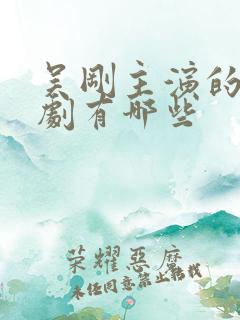 吴刚主演的
劇有哪些
荣耀惡魔
未经同意禁止转载